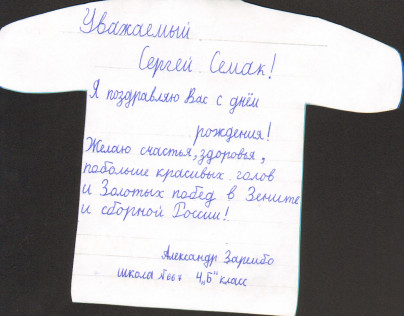 Уважаемый
Сергей Семак!
Я поздравляю Вас с днём
рождения!
Желаю счастья, здоровья,
побольше красивых голов
и Золотых побед в Зените
и сборной России!
Александр Зарембо
школа №667 4„Б“ класс